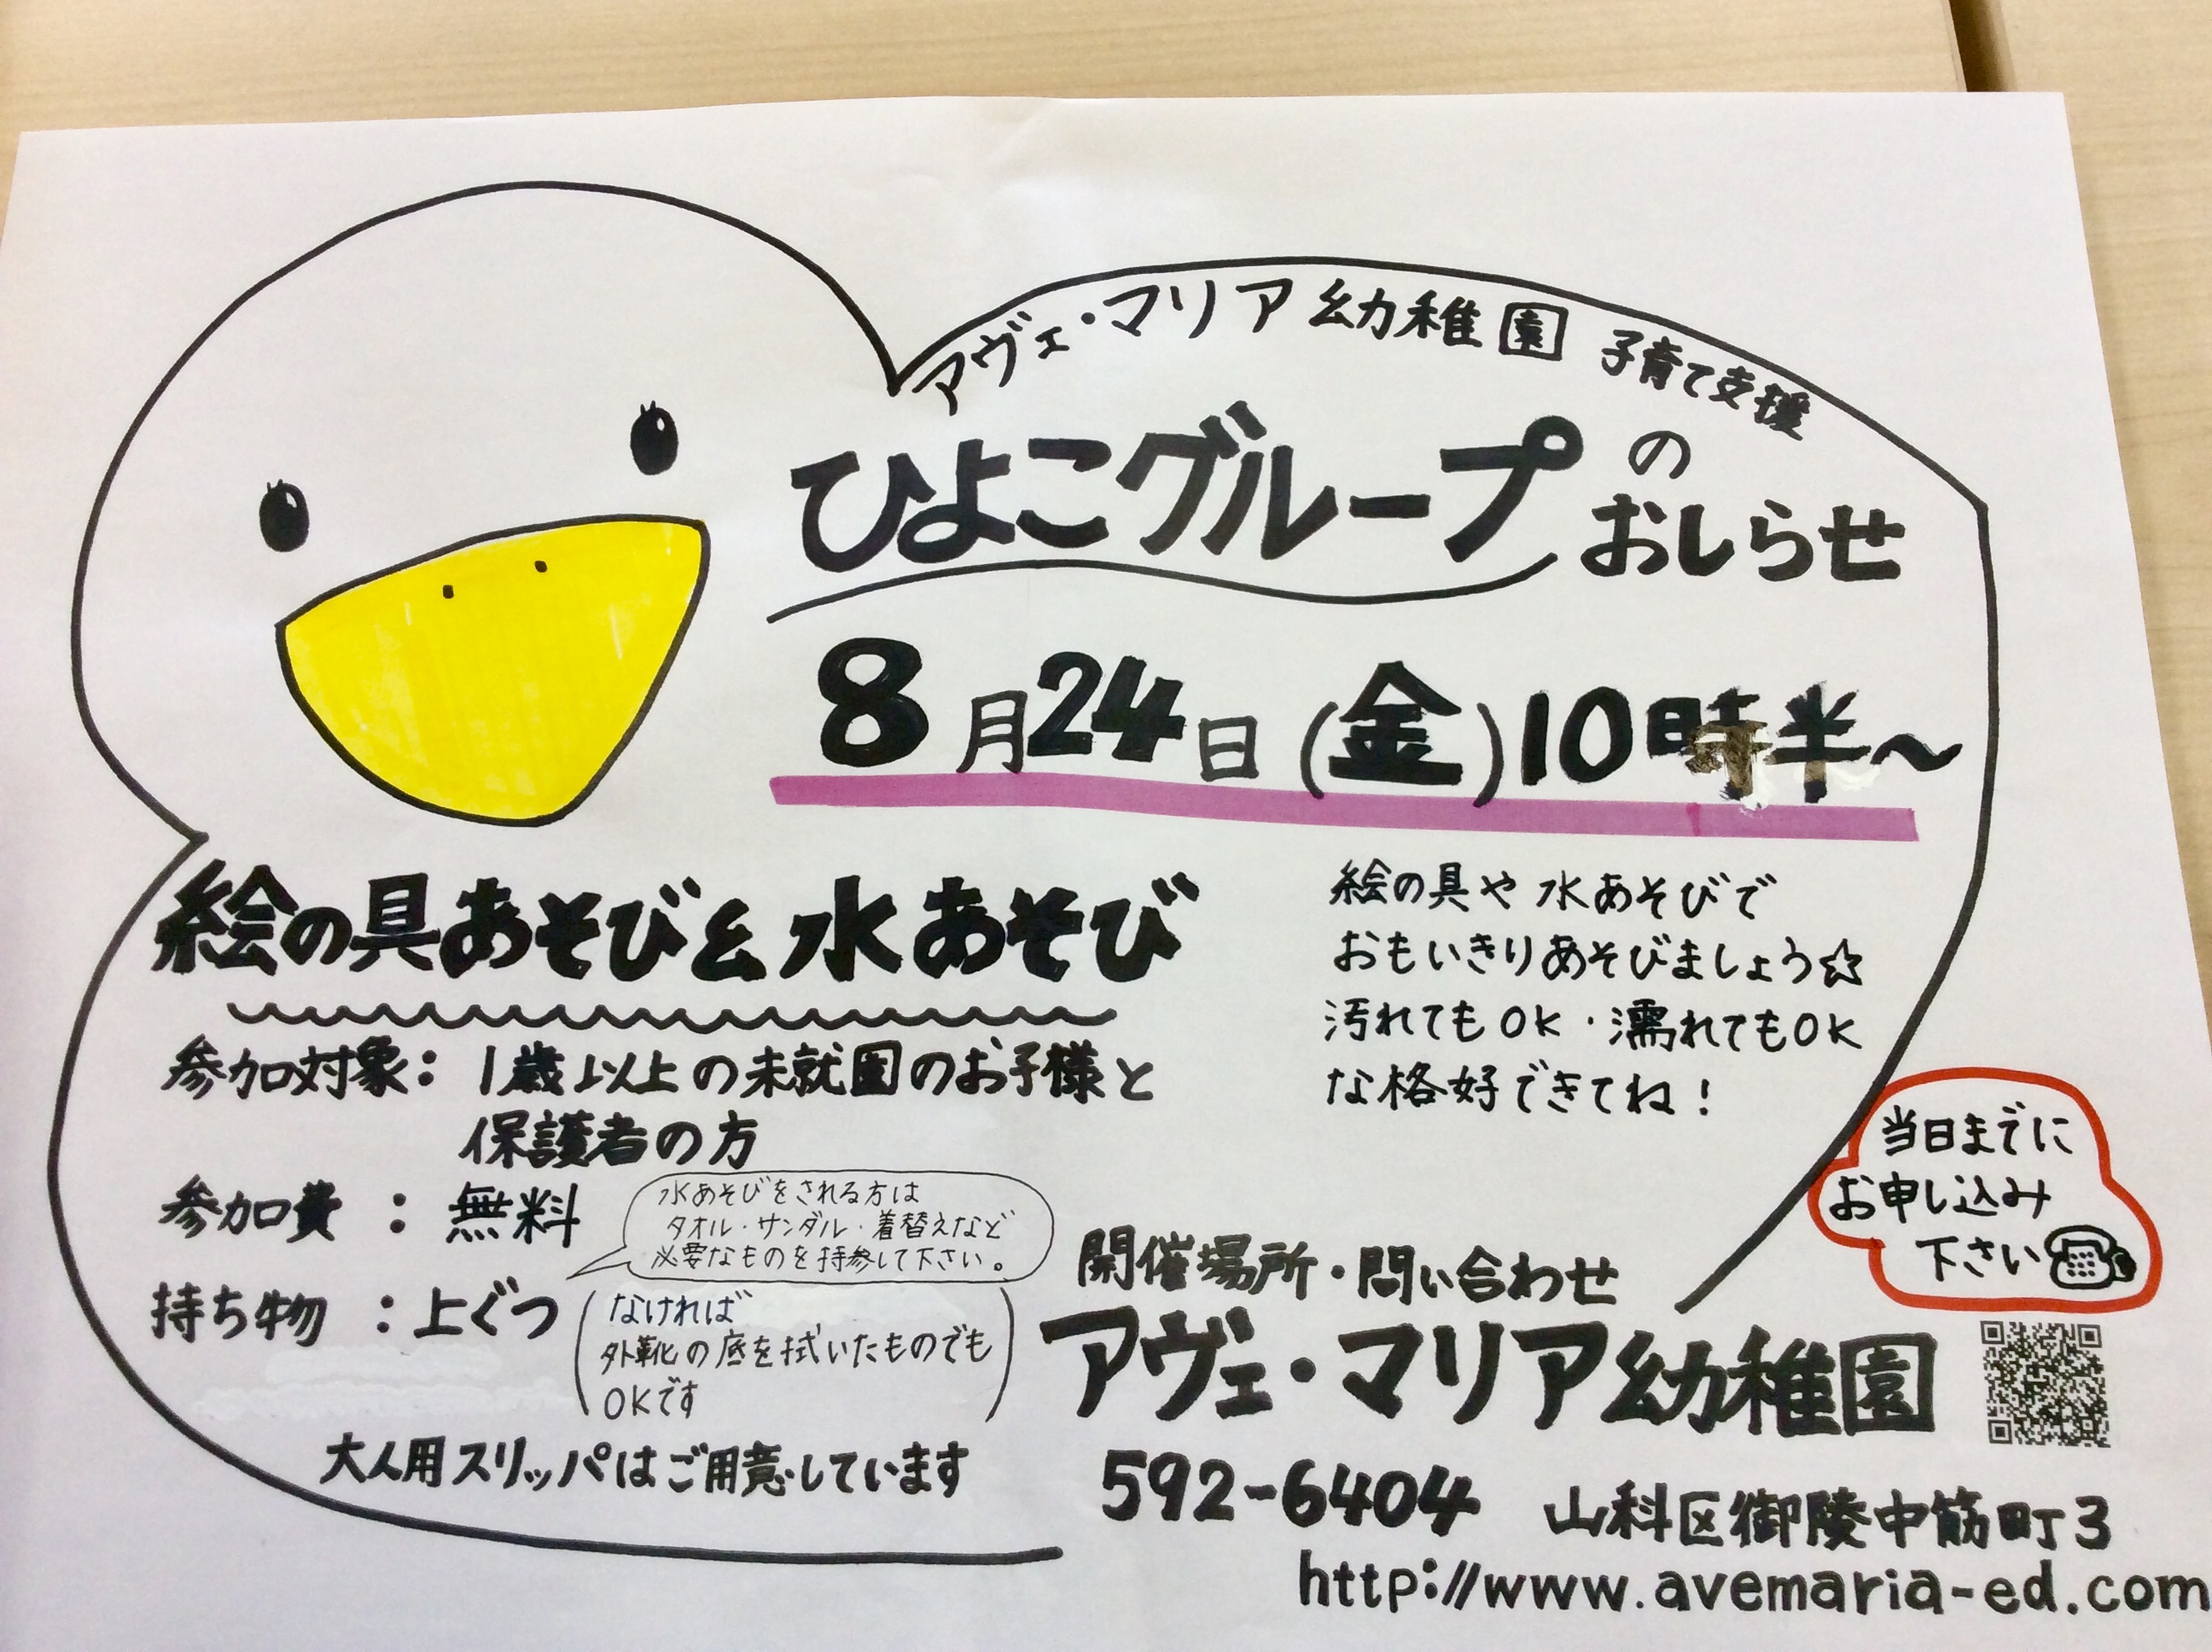 アヴェ・マリア幼稚園 子育て支援
ひよこグループの
おしらせ
8月24日(金)10時半～
絵の具あそび&水あそび
絵の具や水あそびで
おもいきりあそびましょう☆
汚れてもOK・濡れてもOK
な格好できてね!
参加対象: 1歳以上の未就園のお子様と
保護者の方
参加費 : 無料
水あそびをされる方は
タオル・サンダル・着替えなど
必要なものを持参して下さい。
持ち物 : 上ぐつ
(なければ
外靴の底を拭いたものでも
OKです)
大人用スリッパはご用意しています
当日までに
お申し込み
下さい
開催場所・問い合わせ
アヴェ・マリア幼稚園
592-6404 山科区御陵中筋町3
http://www.avemaria-ed.com